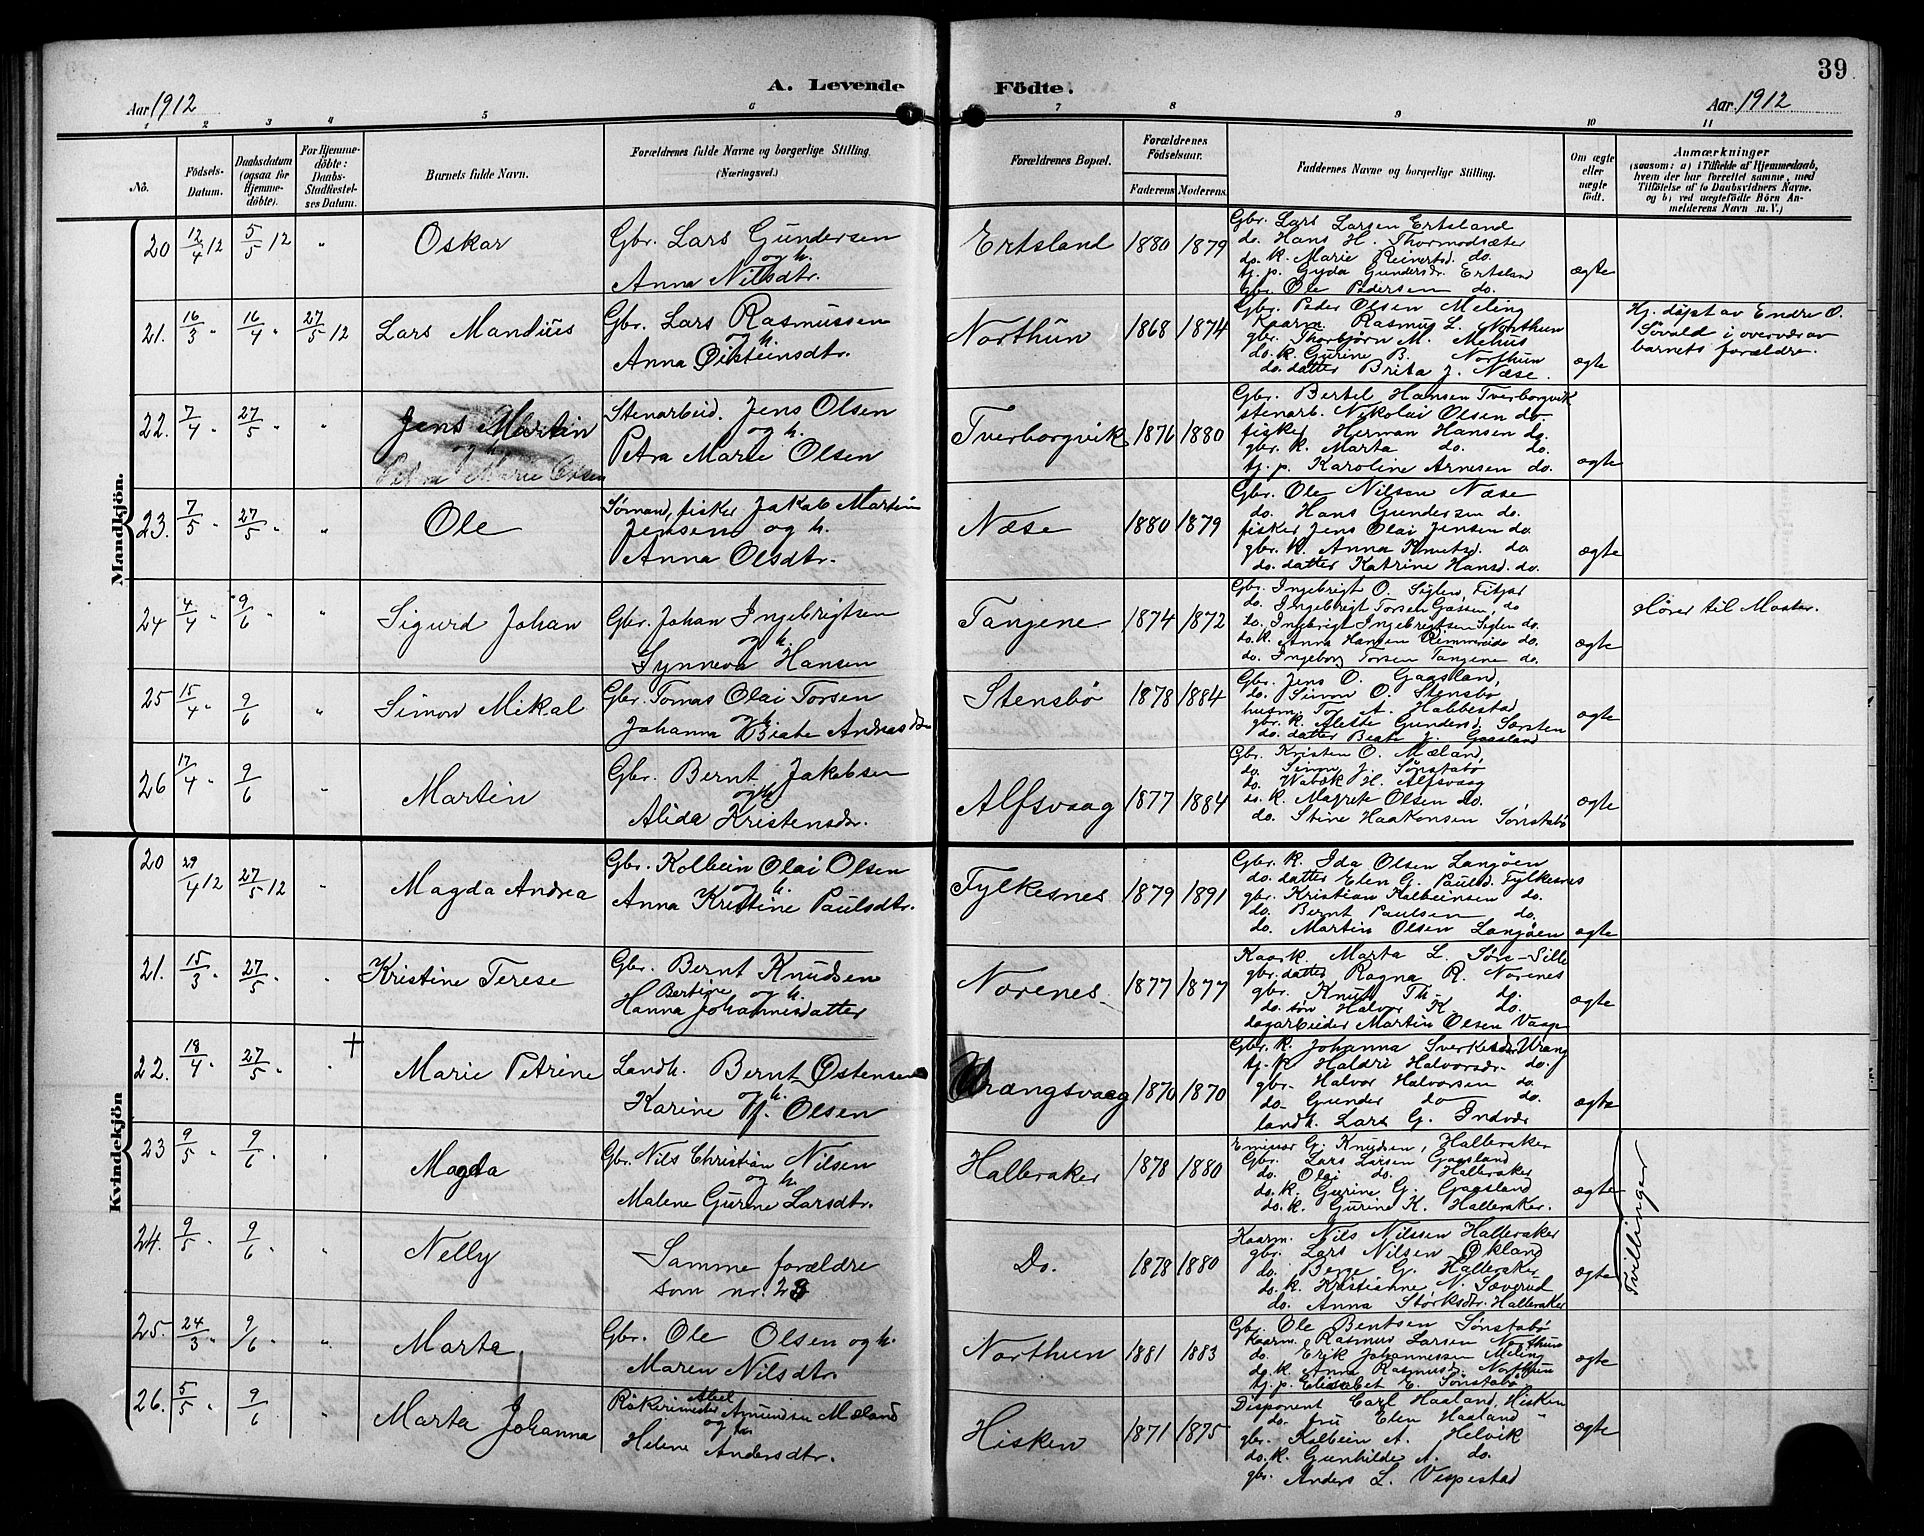 39
A. Levende Födte.
Aar 1912
Aar 1912
1 2 3 4 5 6 7 8 9 10 11
No.
Födsels-Datum.
Daabsdatum (ogsaa for Hjemme-döbte).
For Hjemme-döbte: Daabs-Stadfæstel-ses Datum.
Barnets fulde Navn.
Forældrenes fulde Navne og borgerlige Stilling. (Næringsvei.)
Forældrenes Bopæl.
Forældrenes Födselsaar.
Faderens Moderens
Faddernes Navne og borgerlige Stilling.
Om ægte eller uægte födt.
Anmærkninger
(saasom: a) i Tilfælde af Hjemmedaab, hvem der har forrettet samme, med Tilföielse af to Daabsvidners Navne, og b) ved uægtefödte Börn An-melderens Navn m. V.)
Mandkjön.
20 12/4 12 5/5 12 " Oskar
Gbr. Lars Gundersen
og h.
Anna Nilsdtr.
Ertsland 1880 1879
Gbr. Lars Larsen Ertsland
do. Hans H. Thormodsæter
do. k. Marie Reinertsd. do.
tj. p. Gyda Gundersdr. Ertsland
Gbr. Ole Pedersen do.
ægte
21. 16/3 " 16/4 " 27/5 12 Lars Mandius
Gbr. Lars Rasmussen
og h.
Anna Øisteinsdtr.
Northun 1868 1874
Gbr. Peder Olsen Meling
Kaarm. Rasmus L. Northun
gbr. Thorbjørn M. Mehus
do. k. Gurine B. Northun
do. datter Brita J. Næse.
ægte
Hj. døpt av Endre O.
Søvold i overvær av
barnets forældre.
22. 7/4 " 27/5 " " Jens Martin
og h.
Petra Marie Olsen
Stenarbeid. Jens Olsen
og h.
Petra Marie Olsen
Tverborgvik 1876 1880
Gbr. Bertel Hansen Tverborgvik
stenarb. Nikolai Olsen do.
fisker Herman Hansen do.
gbr. k. Marta do. do.
tj. p. Karoline Arnesen do.
ægte
23. 7/5 " 27/5 " " Ole
Sømand, fisker Jakob Martin
Jensen og h.
Anna Olsdtr.
Næse 1880 1879
Gbr. Ole Nilsen Næse
do. Hans Gundersen do.
fisker Jens Olai Jensen do
gbr. k. Anna Knutsd. do
do. datter Katrine Hansd. do.
ægte
24 4/4 " 9/6 " " Sigurd Johan
Gbr. Johan Ingebrigtsen
og h.
Synneva Hansen
Tangene 1874 1872
Gbr. Ingebrigt O. Siglen, Fitjar
do. Ingebrigt Torsen Gassen, do
do. Ingebrigt Ingebrigtsen Siglen do.
do. k. Anna Hansen Rimmereide do.
do. Ingeborg Torsen Tangene do.
ægte
Hører til Moster.
25 15/4 " 9/6 " Simon Mikal
Gbr. Tomas Olai Torsen
og h.
Johanna Beate Andreasdtr
Stensbø 1878 1884
Gbr. Jens O. Gaasland,
do. Simon O. Stensbø
husm. Tor A. Habbestad
gbr. k. Aleste Gundersd. Sørsten
do. datter Beate J. Gaasland
ægte
26 17/4 " 9/6 " Martin
Gbr. Bernt Jakobsen
og h.
Alida Kristensdr.
Alfsvaag 1877 1884
Gbr. Kristen O. Mæland
do. Simon J. Sønstabø
do. Wabæk H. Alfsvaag
do. k. Magrete Olsen do.
do. Stine Haakonsen Sønstabø
ægte
Kvindekjön
20 29/4 12 27/5 12 " Magda Andrea
Gbr. Kolbein Olai Olsen
og h.
Anna Kristine Paulsdtr.
Fylkesnes 1879 1891
Gbr. k. Ida Olsen Langøen
do. datter Elen G. Paulsd. Fylkesnes
gbr. Kristian Kolbeinsen do.
do. Bernt Paulsen do.
do. Martin Olsen Langøen
ægte
21. 15/3 " 27/5 " " Kristine Terese
Gbr. Bernt Knudsen
Bertine og h.
Hanna Johannesdatter
Norenes 1877 1877
Kaark. Marta L. Søre-Sille
gbr. datter Ragna R. Norenes
gbr. Knut Th. do.
do. søn Halvor K. do.
dagarbeider Martin Olsen Vaage
ægte
22. 18/4 " 27/5 " " † Marie Petrine
Landh. Bernt Østensen
og h.
Karine J. Olsen
Wrangsvaag 1870 1870
Gbr. k. Johanna Sverkesdr. Urang
tj. p. Haldri Halvorsdr. do.
gbr. Halvor Halvorsen do.
do. Gunder do do.
landh. Lars G. Indvær
ægte
23 9/5 " 9/6 " " Magda
Gbr. Nils Christian Nilsen
og h.
Malene Gurine Larsdtr.
Halleraker 1878 1880
Emissær G. Knudsen, Halleraker
Gbr. Lars Larsen Gaasland
do. Olai do. Halleraker
do. k. Gurine G. Gaasland
do. k. Gurine K. Halleraker.
ægte
Tvillinger
24. 9/5 " 9/6 " " Nelly
Samme forældre
som nr. 23
Do. 1878 1880
Kaarm. Nils Nilssen Halleraker
gbr. Lars Nilsen Økland
do. Berge G. Halleraker
do. k. Kristianne N. Søverud
do. Anna Størksdtr. Halleraker
ægte
25. 24/3 " 9/6 " " Marta
Gbr. Ole Olsen og h.
Maren Nilsdtr.
Northun 1881 1883
Gbr. Ole Bentsen Sønstabø
Kaarm. Rasmus Larsen Northun
do. Erik Johannessen Meling
do. k. Anna Rasmusdr. Northun
tj. p. Elisabet E. Sønstabø
ægte
26. 5/5 " 9/6 " Marta Johanna
Røkerimester Aksel Amundsen Mæland
og h.
Helene Andersdtr.
Hisken 1871 1875
Disponent Carl Haaland, Hisken
do. fru Elen Haaland "
gbr. Kolbein A. Helvik
do. k. Gunhilde A. do.
gbr. Anders L. Vespestad
ægte